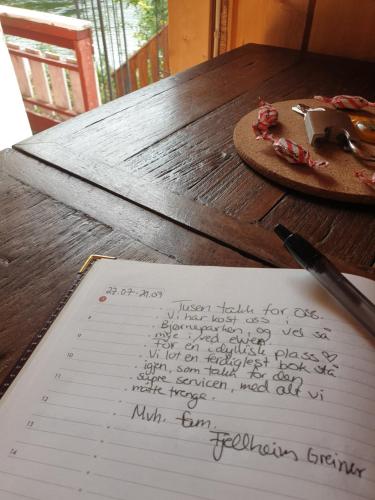 27.07-29.09
Tusen takk for oss.
Vi har kost oss i
Bjørneparken, og ved så
mye i ved elven.
For en idyllisk plass♡
Vi lot en ferdiglest bok stå
igjen, som takk for den
supre servicen, med alt vi
måtte trenge.
Mvh. fam.
Fjellheim Greiner
8
9
10
11
12
13
14